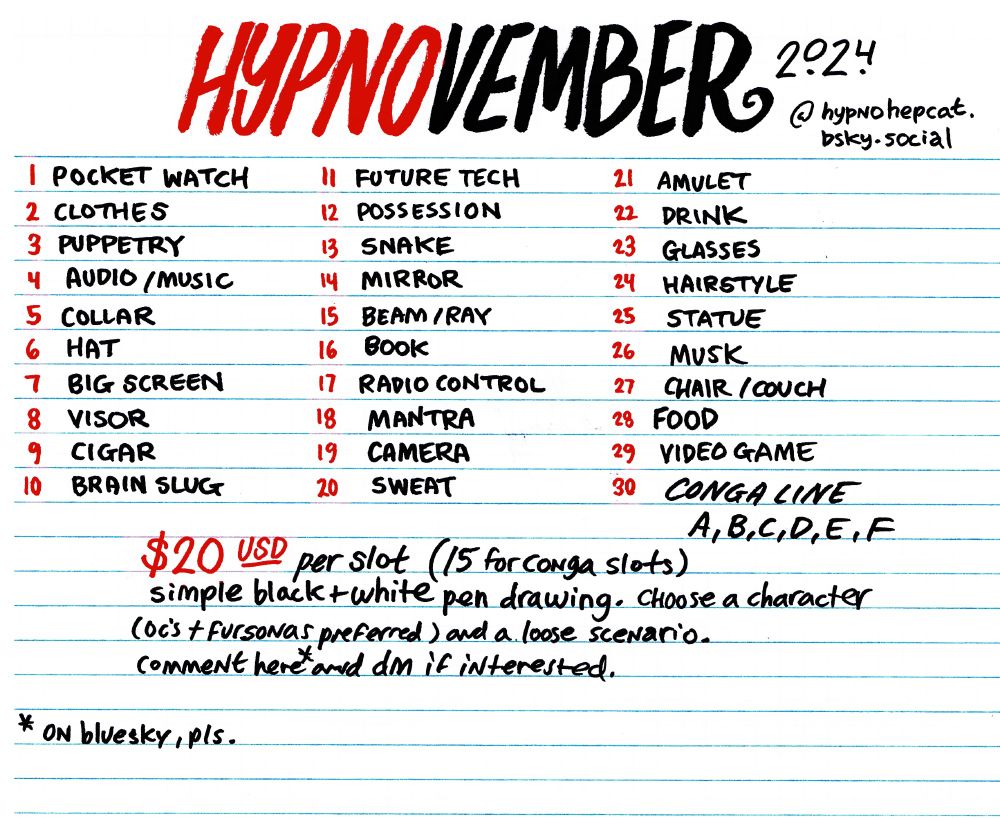 HYPNOVEMBER 2024
@hypnohepcat.
bsky.social
1 POCKET WATCH
2 CLOTHES
3 PUPPETRY
4 AUDIO/MUSIC
5 COLLAR
6 HAT
7 BIG SCREEN
8 VISOR
9 CIGAR
10 BRAIN SLUG
11 FUTURE TECH
12 POSSESSION
13 SNAKE
14 MIRROR
15 BEAM/RAY
16 BOOK
17 RADIO CONTROL
18 MANTRA
19 CAMERA
20 SWEAT
21 AMULET
22 DRINK
23 GLASSES
24 HAIRSTYLE
25 STATUE
26 MUSK
27 CHAIR/COUCH
28 FOOD
29 VIDEO GAME
30 CONGA LINE
A, B, C, D, E, F
$20 USD per slot (15 for conga slots)
simple black + white pen drawing. Choose a character
(OC's + fursonas preferred) and a loose scenario.
comment here* and dm if interested.
* on bluesky, pls.